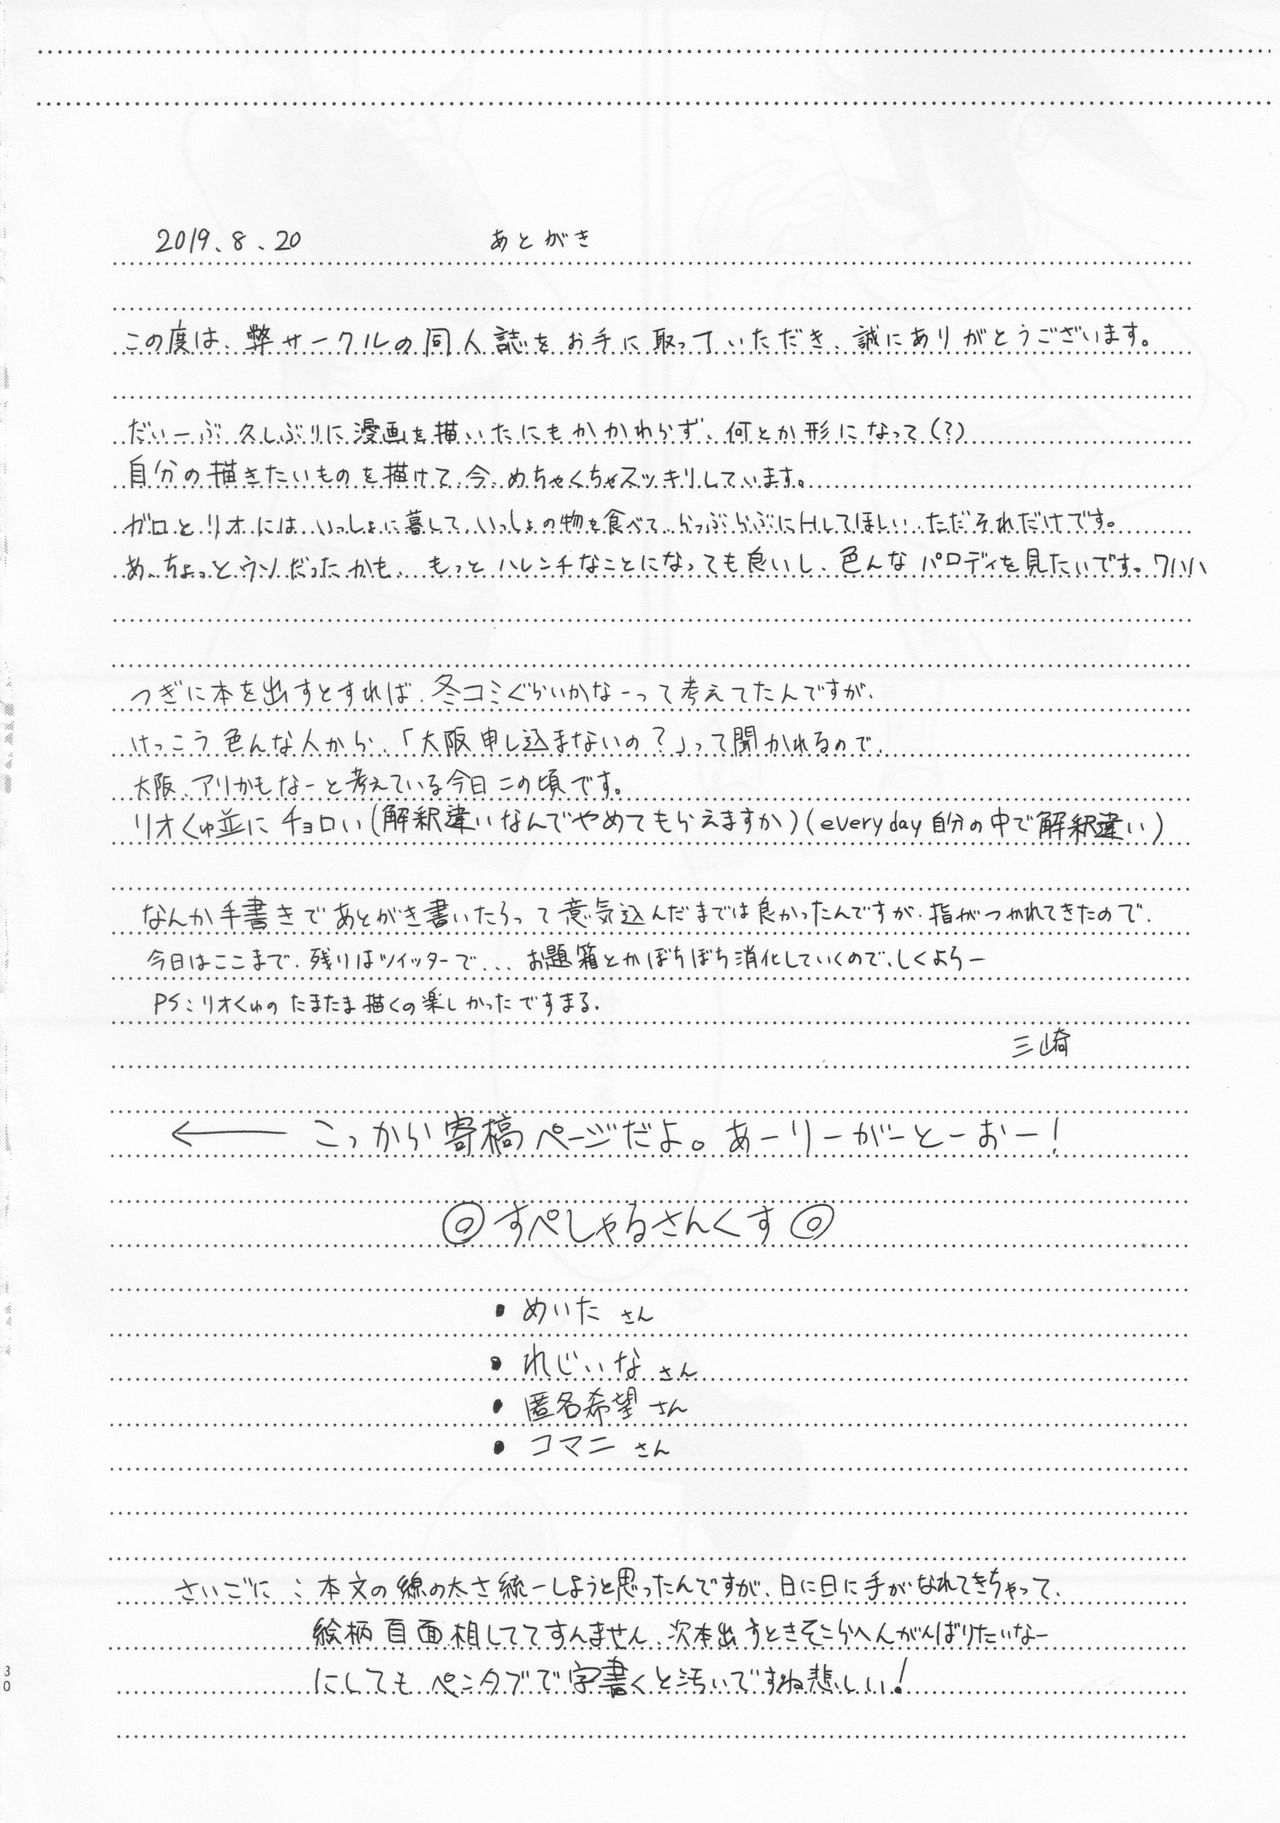 2019.8.20 あとがき
この度は、弊サークルの同人誌をお手に取っていただき、誠にありがとうございます。
だいーぶ久しぶりに漫画を描いたにもかかわらず、何とか形になって(?)
自分の描きたいものを描けて、今、めちゃくちゃスッキリしています。
ガロとリオには、いっしょに暮して、いっしょの物を食べて、らっぶらぶにHしてほしい、ただそれだけです。
あ、ちょっとウソだったかも、もっとハレンチなことになっても良いし、色んなパロディを見たいです。ワハハ
つぎに本を出すとすれば、冬コミぐらいかなーって考えてたんですが、
けっこう色んな人から、「大阪申し込まないの?」って聞かれるので、
大阪、アリかもなーと考えている今日この頃です。
リオくゅ並にチョロい(解釈違いなんでやめてもらえますか)(everyday自分の中で解釈違い)
なんか手書きであとがき書いたろって意気込んだまでは良かったんですが、指がつかれてきたので、
今日はここまで、残りはツイッターで... お題箱とかぼちぼち消化していくので、しくよろー
PS:リオくゅのたまたま描くの楽しかったですまる。
三崎
← こっから寄稿ページだよ。あーりーがーとーおー!
◎すぺしゃるさんくす◎
• めいた さん
• れじぃな さん
• 匿名希望 さん
• コマニ さん
さいごに:本文の線の太さ統一しようと思ったんですが、日に日に手がなれてきちゃって、
絵柄百面相しててすんません、次本出すときそこらへんがんばりたいなー
にしてもペンタブで字書くと汚いですね悲しい!
30